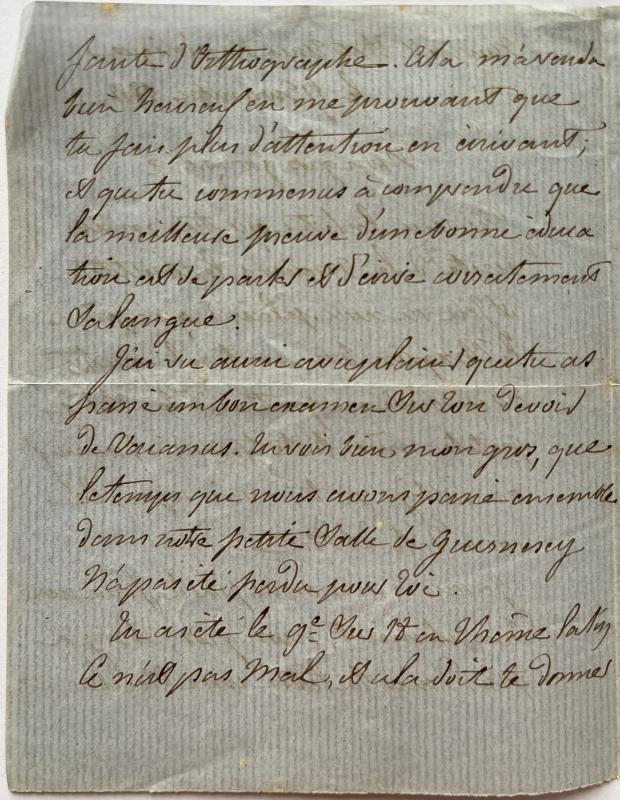 faute d'Orthographe. Cela m'a rendu
bien heureux en me prouvant que
tu fais plus d'attention en écrivant,
et que tu commences à comprendre que
la meilleure preuve d'une bonne éduca
tion est de parler et d'écrire correctement
sa langue.
J'ai vu aussi avec plaisir que tu as
passé un bon examen sur ton devoir
de Vacances. Tu vois bien mon gros, que
le temps que nous avons passé ensemble
dans notre petite Salle de Guernesey
n'a pas été perdu pour toi.
Tu as été le 9e sur 18 en Thème latin
Ce n'est pas Mal, et cela doit te donner